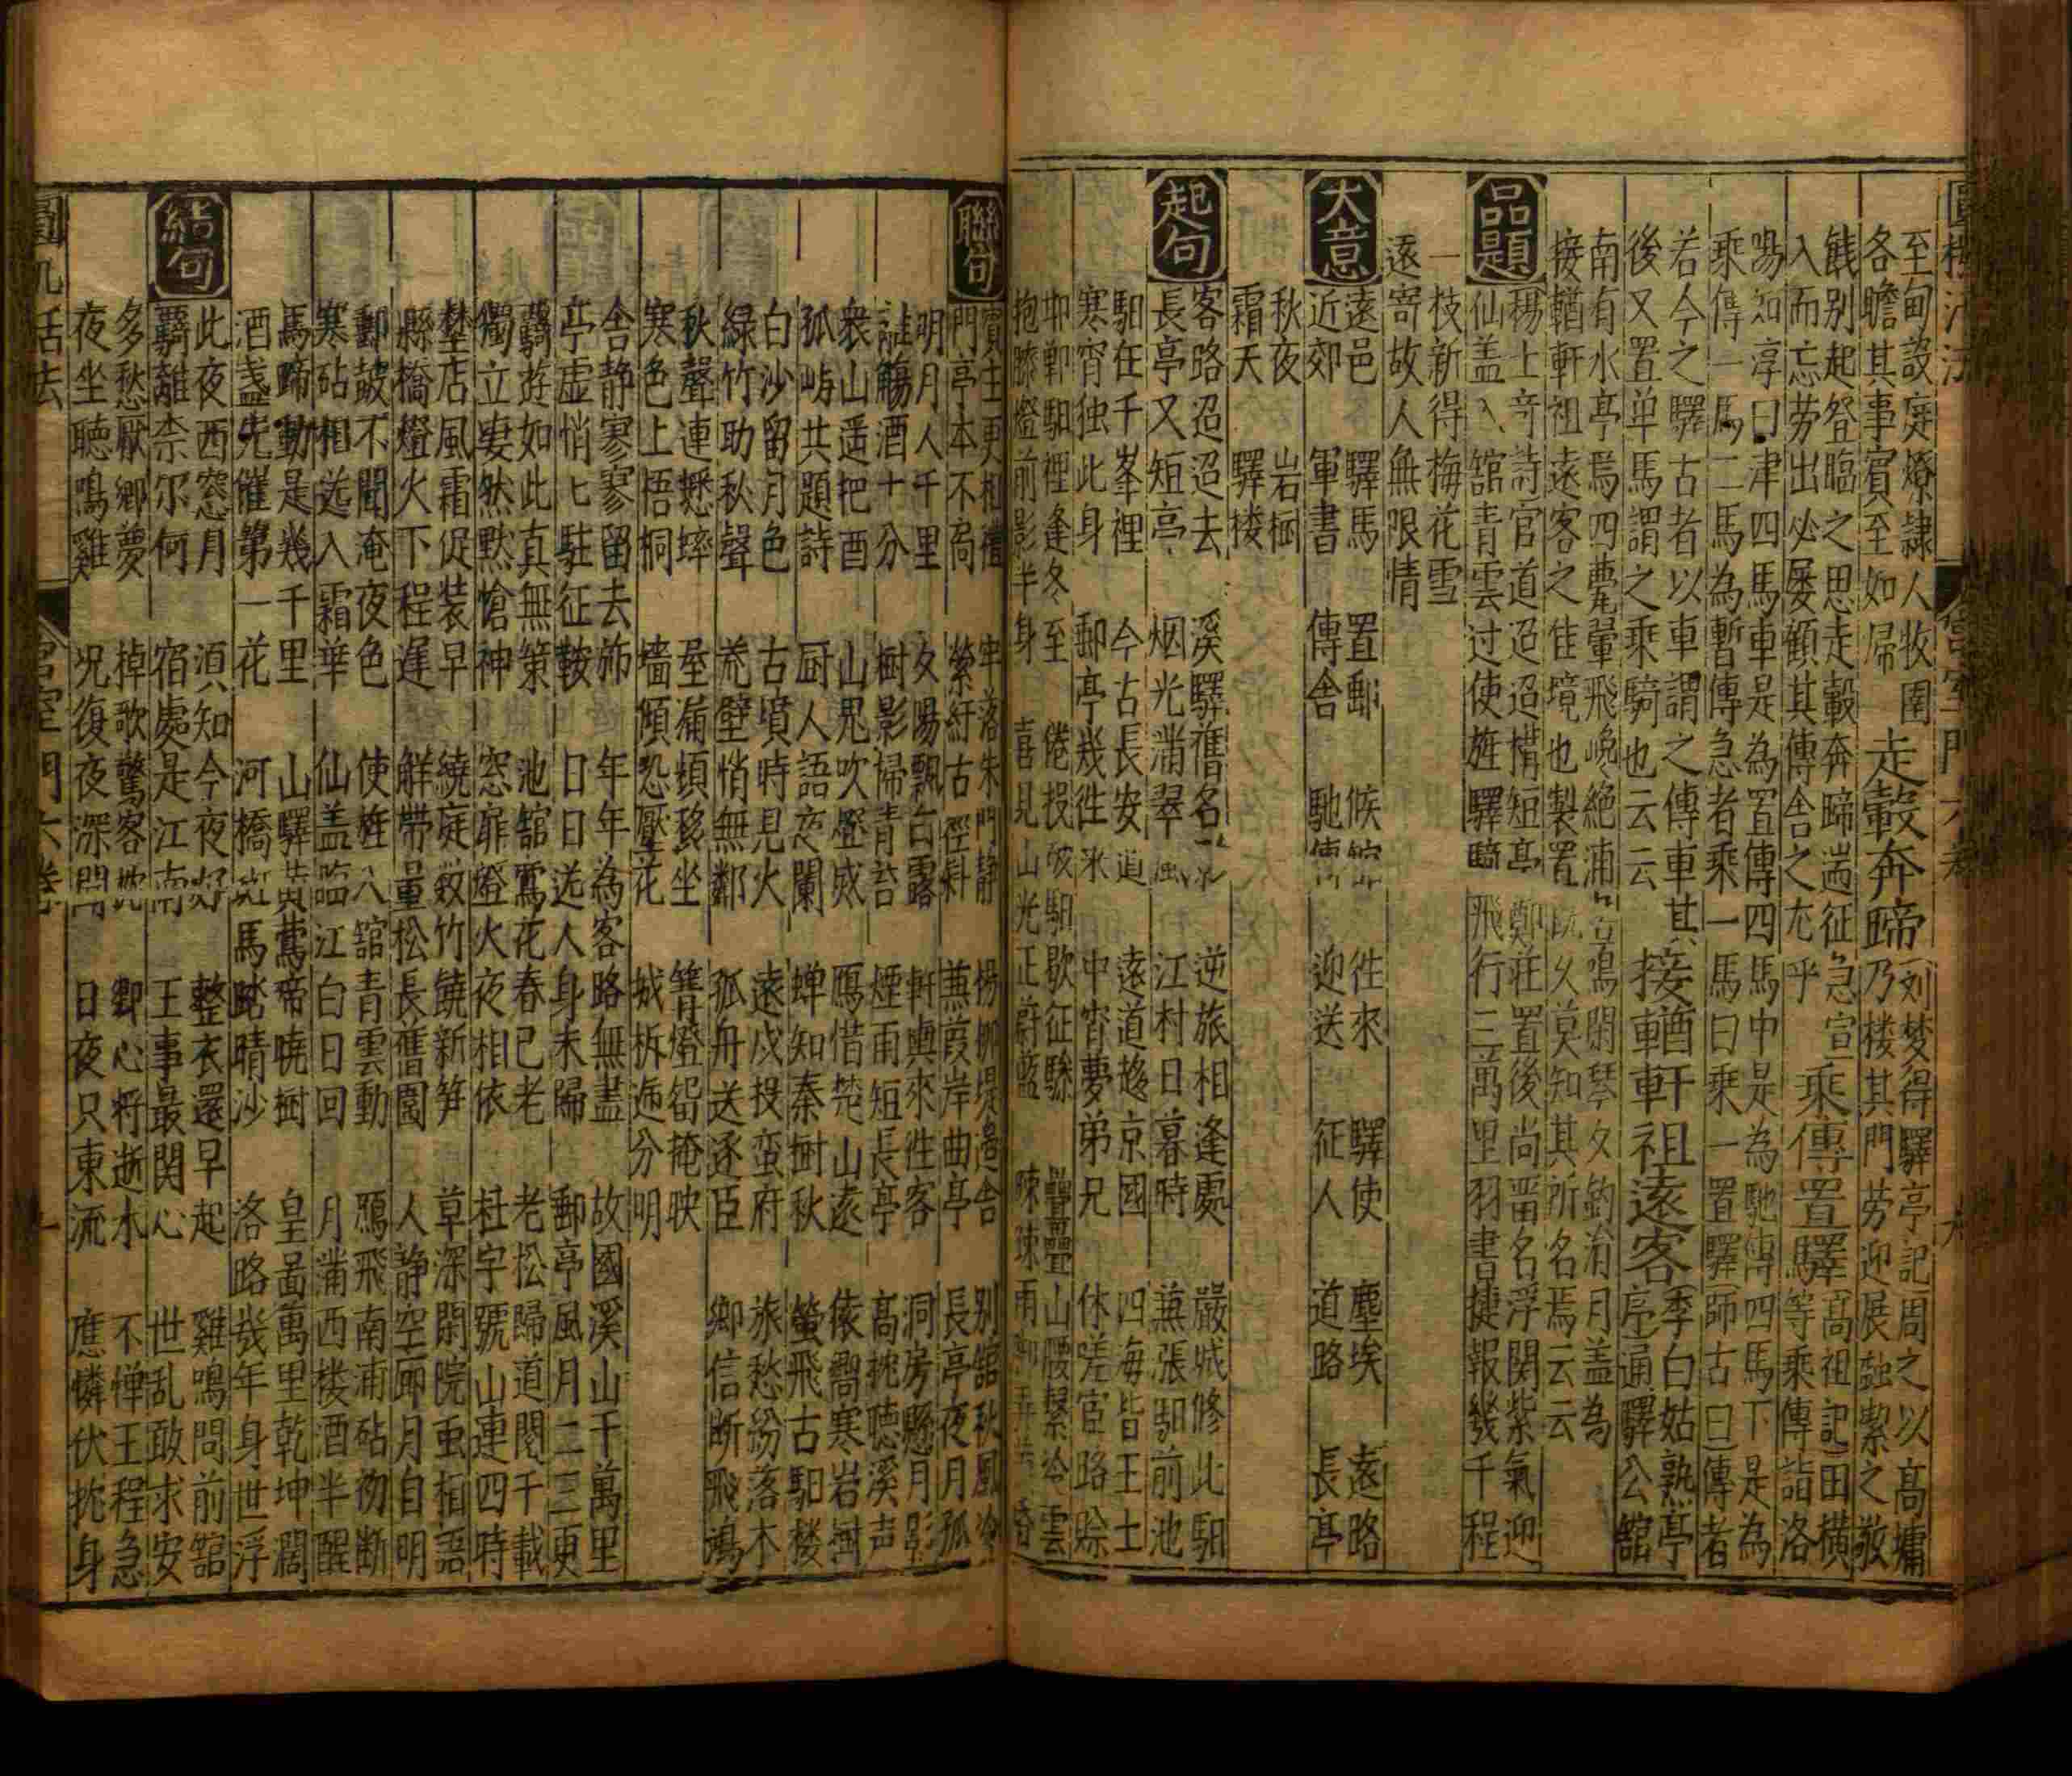 至甸設庭燎隷人牧圉
各瞻其事賓至如歸
走轂奔蹄
劉夢得驛亭記周之以高墉
乃楼其門芳迎展蠲潔之敬
餞别起登臨之思走轂奔蹄遄征急宣
入而忘劳出必屡顧其傳舎之尤乎
乘傳置驛
高祖記田横
等乘傳詣洛
如淳曰津四馬車是為置傳四馬中是為馳傳四馬下是為
乘傳一馬二馬為暫傳急者乘一馬曰乘一置驛師古曰傳者
若今之驛古者以車謂之傳車其
後又置单馬謂之乘騎也云云
接車酋軒祖遠客
李白姑熟亭
序通驛公舘
南有水亭焉四甍翬飛巉絶浦
鳴閑琴夕釣淯月盖為
接輶軒祖遠客之佳境也製置既久莫知其所名焉云云
品題
楊上奇詩官道迢迢搆短亭
鄭莊置後尚畱名浮関紫氣迎
仙盖入舘青雲过使旌驛騎
飛行三萬里羽書捷報幾千程
一枝新得梅花雪
遠寄故人無限情
大意
遠邑 驛馬 置郵 候舘 徃來 驛使 塵埃 遠路
近郊 軍書 傳舎 馳使 迎送 征人 道路 長亭
秋夜 岩桐
霜天 驛楼
起句
客路迢迢去 溪驛舊名 逆旅相逢處 嚴城修此馹
長亭又短亭 烟光滿翠 江村日暮時 蒹張馹前池
馹在千峯裡 今古長安道 遠道趍京國 四海皆王土
寒宵独此身 郵亭幾徃來 中宵夢弟兄 休嗟宦路賒
邯鄲馹裡逢冬至 倦投破馹歇征驂 疊疊山腰繫冷雲
抱膝燈前影半身 喜見山光正蔚藍
聯句
賓主更相禮 牢落朱門静 楊柳堤邉舎 别舘秋風冷
門亭本不扃 縈紆古徑斜 蒹葭岸曲亭 長亭夜月孤
明月人千里 夕陽飄白露 軒輿來徃客 洞房懸月影
離觴酒十分 樹影掃青苔 煙雨短長亭 高枕聴溪声
衆山遥把酉 山鬼吹燈烕 鴈惜楚山遠 傣嚮寒岩樹
孤屿共題詩 厨人語夜闌 蝉知秦樹秋 螢飛古馹楼
白沙留月色 古墳時見火 遠戍投蛮府 旅愁紛落木
緑竹助秋聲 荒壁悄無鄰 孤舟送逐臣 鄉信断飛鴻
秋聲連蟋蟀 屋漏頻移坐 篝燈留掩映
寒色上梧桐 墻傾恐壓花 城柝迤分明
舎静寥寥留去斾 年年為客路無盡 故國溪山千萬里
亭虚悄匕駐征鞍 日日送人身未歸 郵亭風月二三更
驕遊如此真無策 池舘鶯花春已老 老松歸道閱千載
獨立凄然黙愴神 窓扉燈火夜相依 杜宇號山連四時
埜店風霜促装早 繞庭数竹饒新笋 草深閑院䖝相語
縣橋燈火下程遲 解帶量松長舊園 人静空廊月自明
郵皷不聞淹夜色 使旌入舘青雲動 鴈飛南浦砧初断
寒砧相送入霜華 仙盖臨江白日回 月滿西楼酒半醒
馬蹄動是幾千里 山驛黄鶯啼曉樹 皇啚萬里乾坤濶
酒盞先催第一花 河橋斑馬踏晴沙 洛路㡬年身世浮
結句
此夜西窓月 湏知今夜好 整衣還早起 雞鳴問前舘
覊離柰尔何 宿處是江南 王事最関心 世乱敢求安
多愁厭鄉夢 掉歌驚客枕 卿心将逝水 不憚王程急
夜坐聴鳴雞 况復夜深聞 日夜只東流 應憐伏枕身